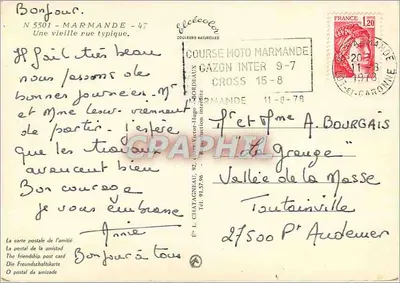 Bonjour.
N 3301 - MARMANDE - 47
Une vieille rue typique.
Il fait très beau
nous passons de
bonnes journées. Mr
et Mme viennent
de partir. J'espère
que les travaux
avancent bien
Bon courage
je vous embrasse
Annie
Bonjour à tous
La carte postale de l'amitié
La postal de la amistad
The friendship post card
Die Freundschaftskarte
O postal da amizade
Elcécolor
COULEURS NATURELLES
Ets L. CHATAGNEAU, 92, BORDEAUX
Tél. 91.57.96 interdite
COURSE MOTO MARMANDE
GAZON INTER 9-7
CROSS 15-8
MARMANDE 11-8-78
FRANCE
1,20
MARMANDE
11-8
1978
LOT-ET-GARONNE
CPAPHIL
Mr et Mme A. BOURGAIS
"La Grange"
Vallée de la Masse
Toutainville
27500 Pt Audemer